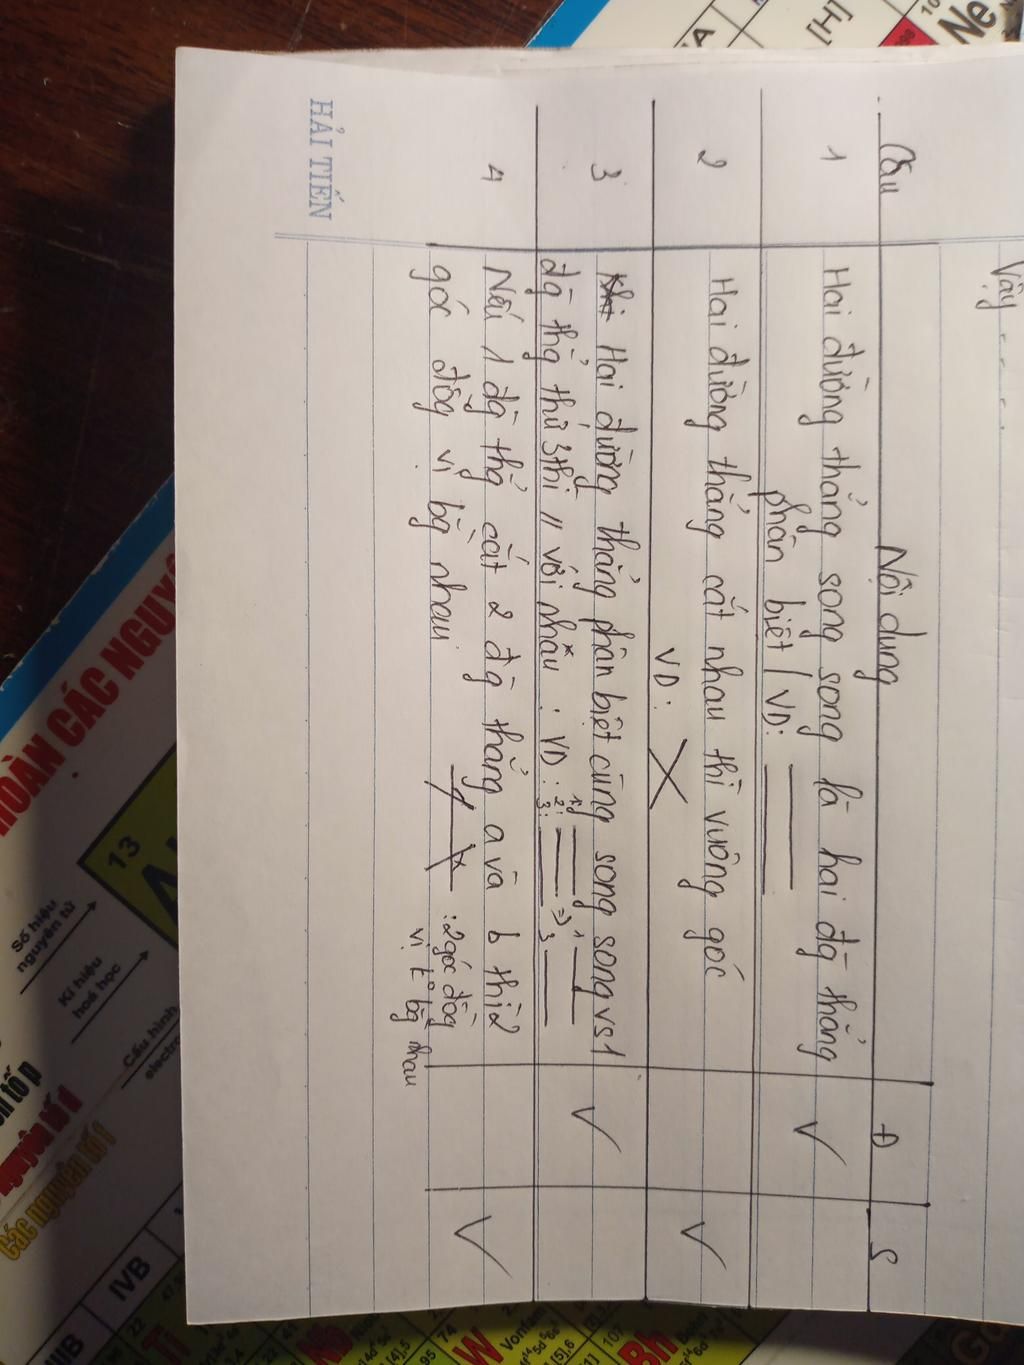 Vậy - - - -
Câu Nội dung Đ S
1 Hai đường thẳng song song là hai đg thẳng
phân biệt / VD:
2 Hai đường thẳng cắt nhau thì vuông góc
VD:
3 Hai đường thẳng phân biệt cùng song song vs 1
đg thẳg thứ 3 thì // với nhau : VD: 1: 2: 3: => 1 3
4 Nếu 1 đg thẳg cắt 2 đg thẳng a và b thì 2
góc đồng vị bg nhau : 2 góc đồng
vị bg nhau
HẢI TIẾN
[H]
Ne
HOÀN CÁC NGUY
13
Số hiệu
nguyên tử
Kí hiệu
hoá học
Cấu hình
electro
tố p
nguyên tố d
Các nguyên tố f
IVB
IIIB
22
Ti
74
W
Vonfam
107
Bh